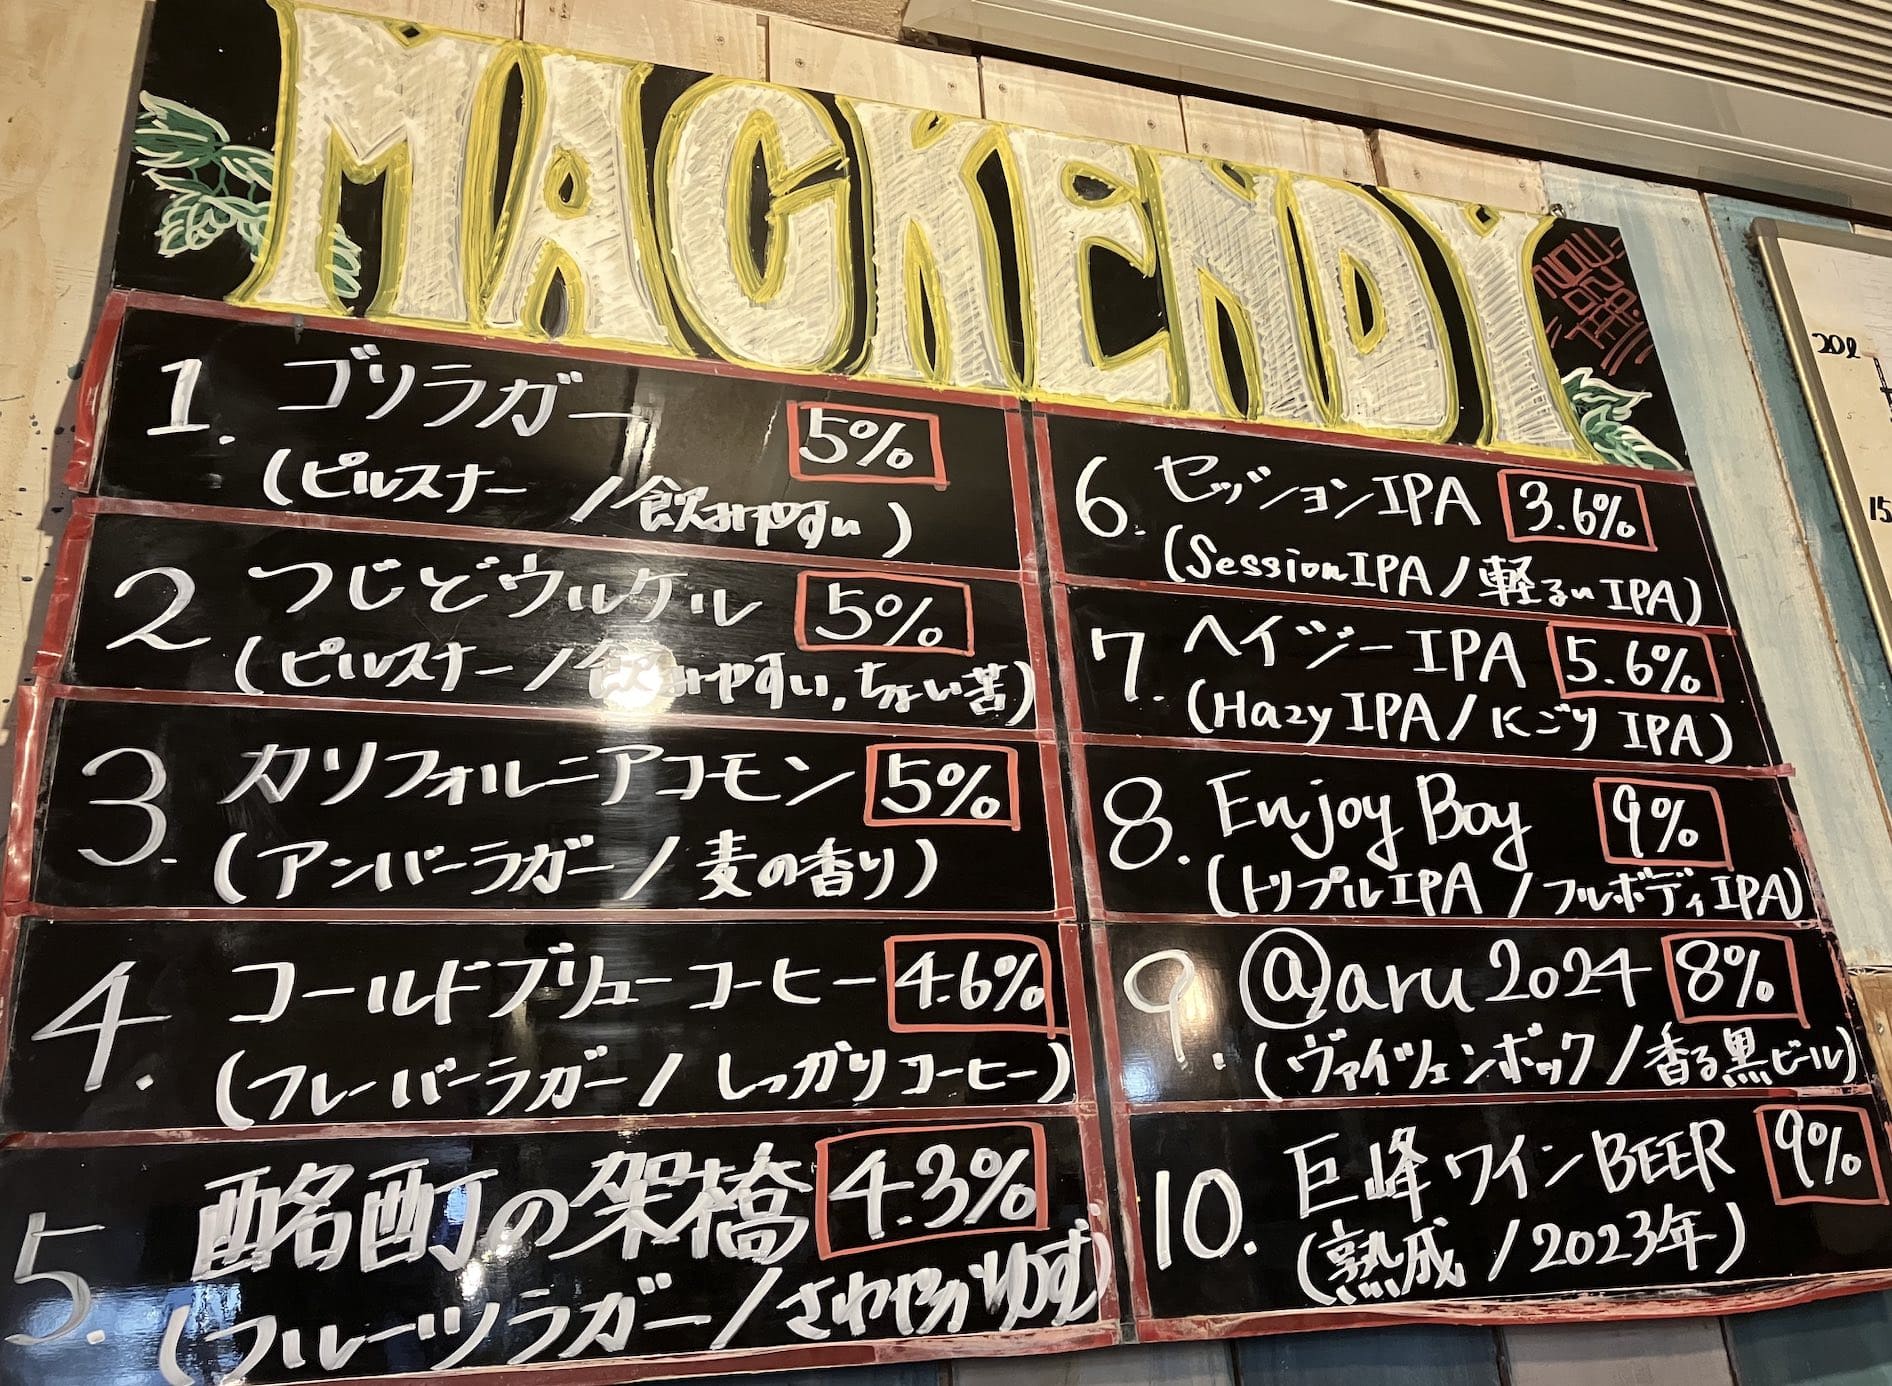 MACKENDY
NOW
ON
TAP
1. ゴリラガー 5%
(ピルスナー/飲みやすい)
2. つじどウルケル 5%
(ピルスナー/飲みやすい、ちょい苦)
3. カリフォルニアコモン 5%
(アンバーラガー/麦の香り)
4. コールドブリューコーヒー 4.6%
(フレーバーラガー/しっかりコーヒー)
5. 酩酊の架橋 4.3%
(フルーツラガー/さわやかゆず)
6. セッションIPA 3.6%
(Session IPA/軽るいIPA)
7. ヘイジーIPA 5.6%
(Hazy IPA/にごりIPA)
8. Enjoy Boy 9%
(トリプルIPA/フルボディIPA)
9. @aru 2024 8%
(ヴァイツェンボック/香る黒ビール)
10. 巨峰ワインBEER 9%
(熟成/2023年)
20ℓ
15